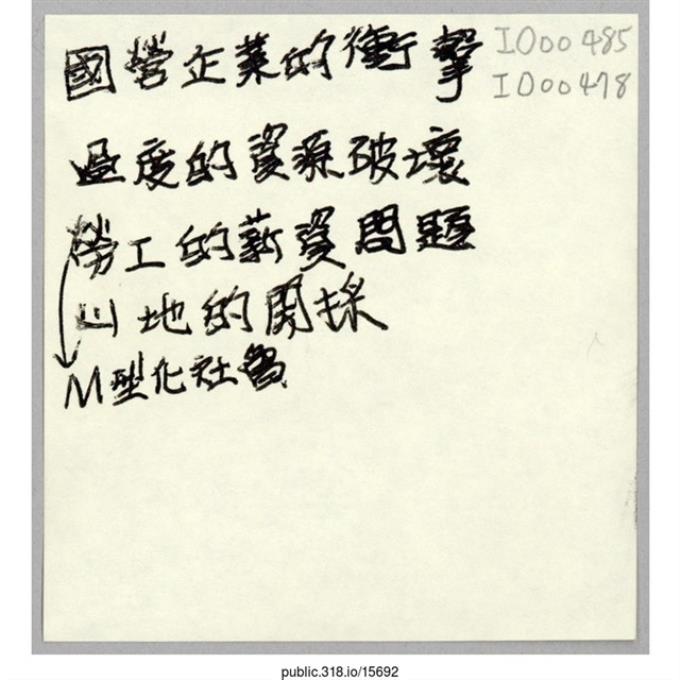 國營企業的衝擊
IO00485
IO00478
過度的資源破壞
勞工的薪資問題
山地的開採
M型化社會
public.318.io/15692